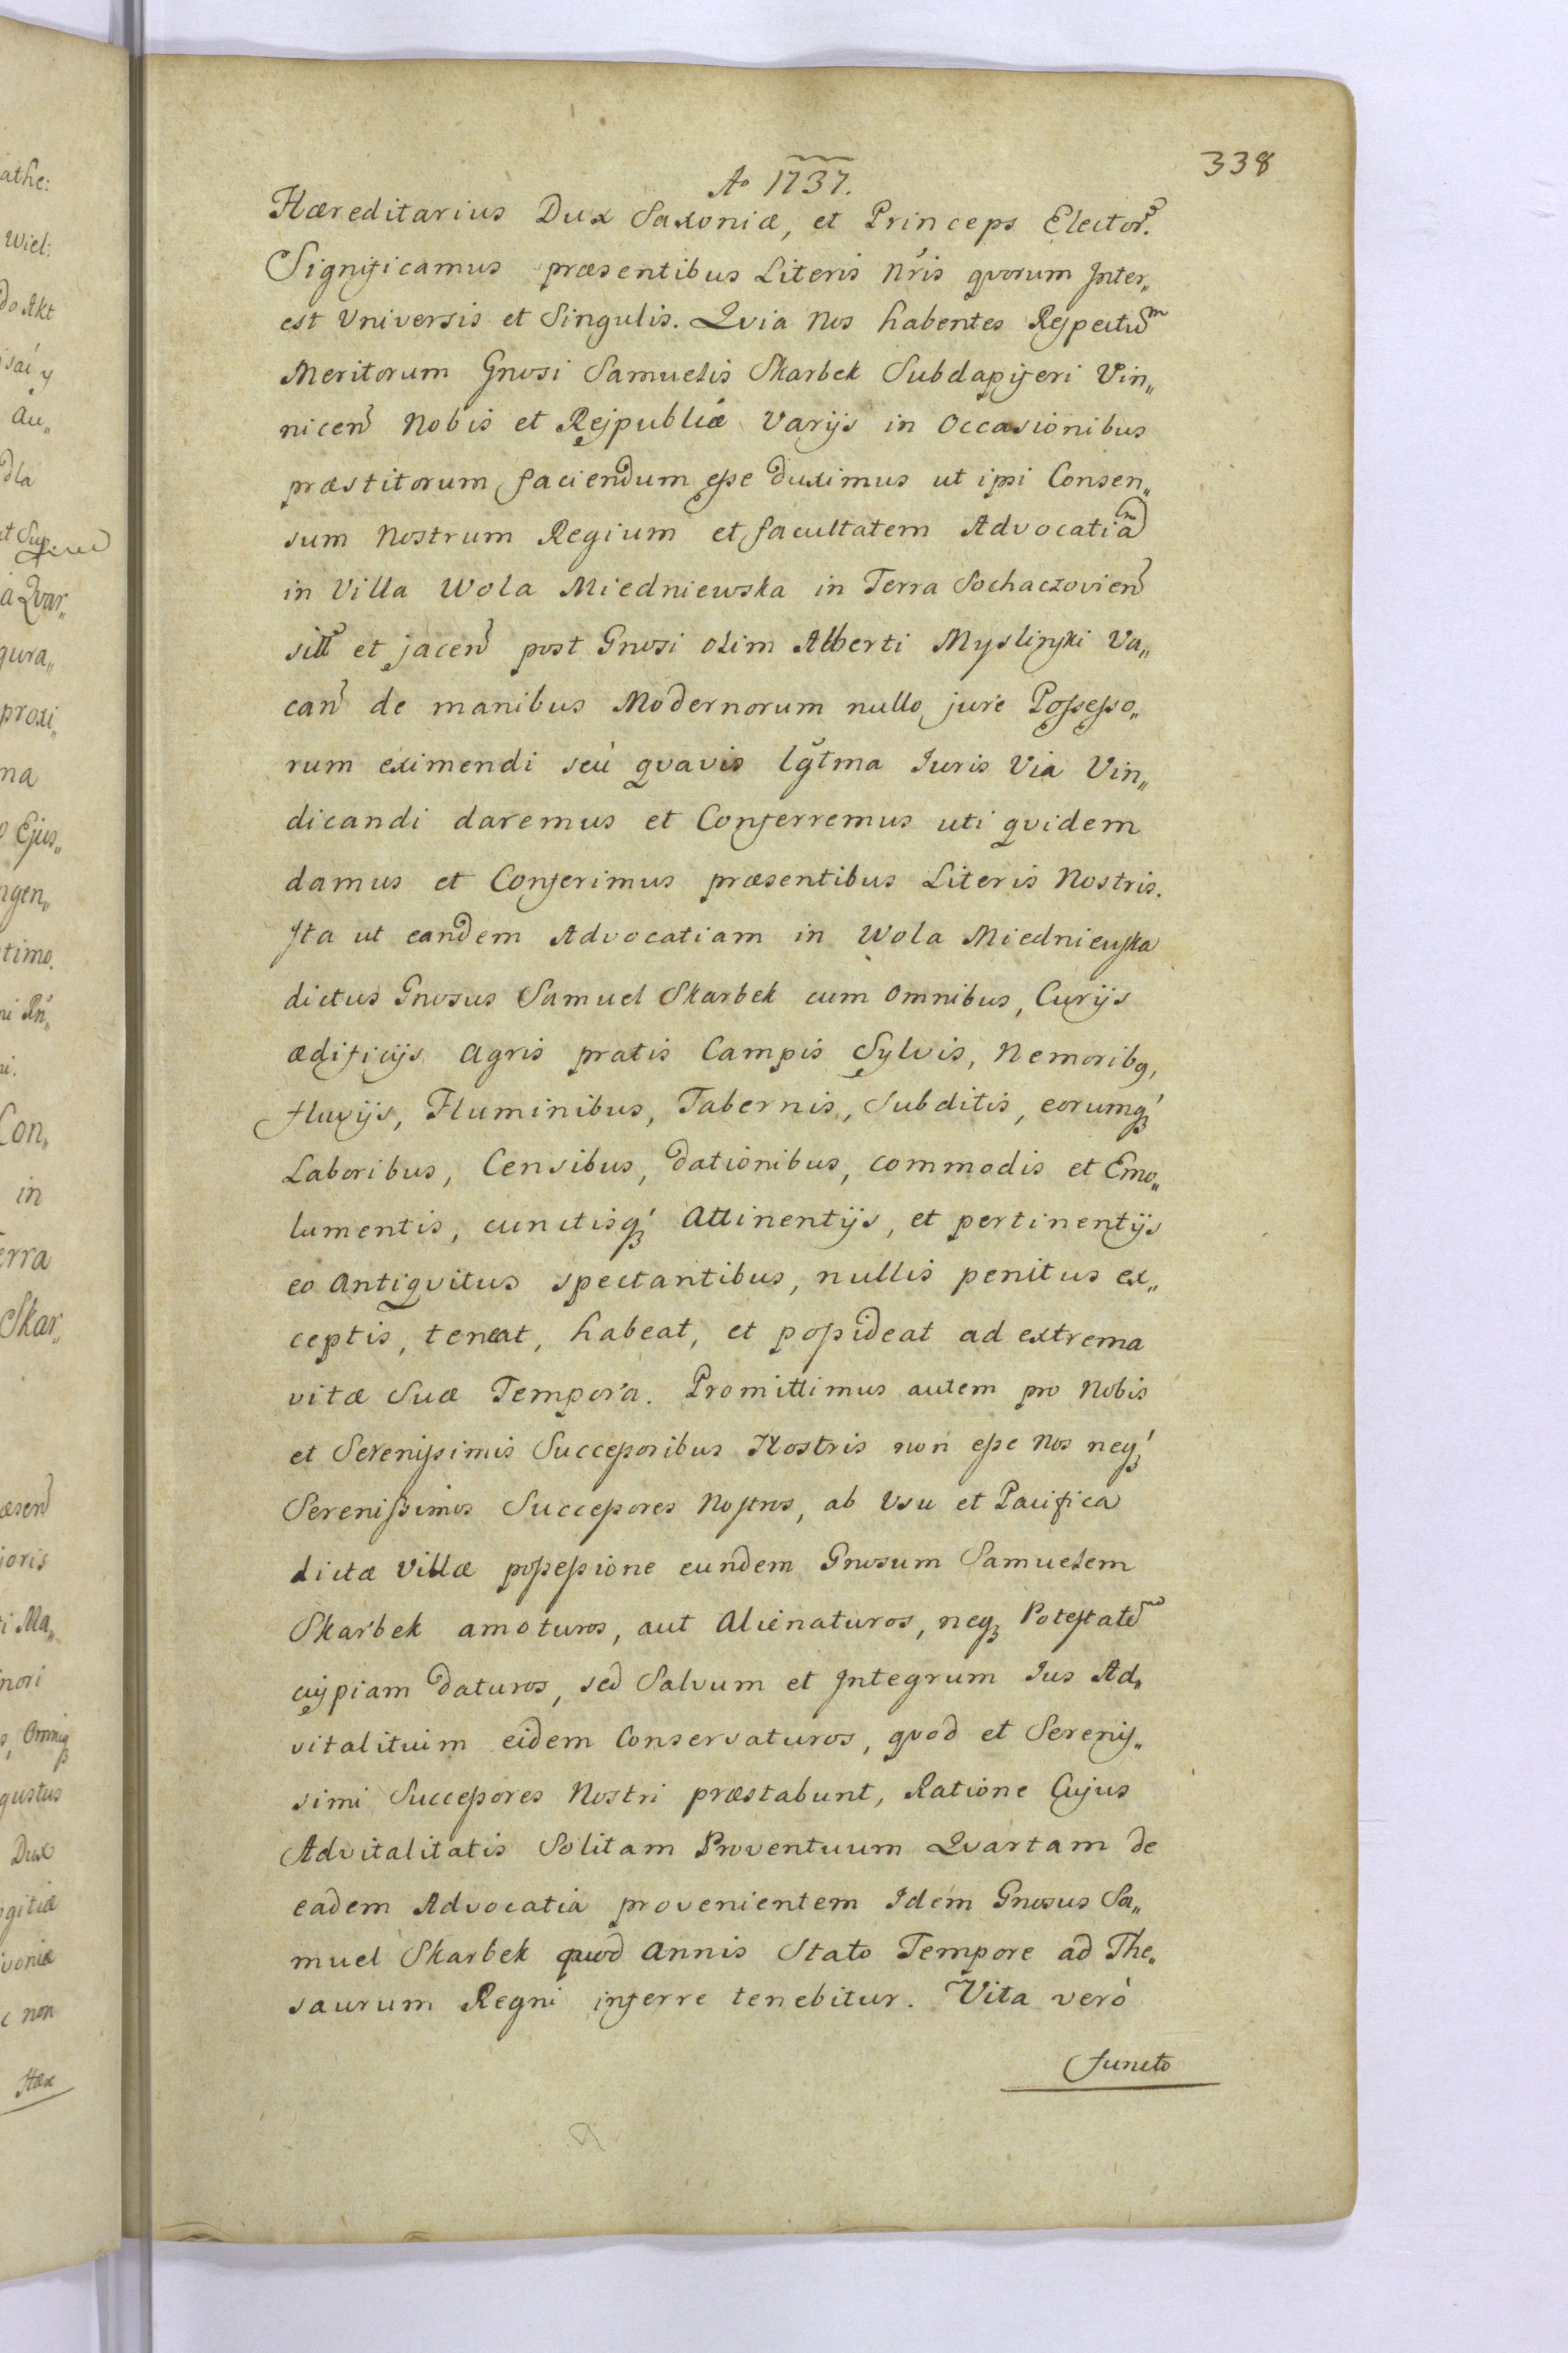 338
Ao 1737.
Hæreditarius Dux Saxoniæ, et Princeps Elector.
Significamus præsentibus Literis Nris qvorum Inter„
est Universis et Singulis. Qvia Nos habentes Respectum
Meritorum Gnosi Samuelis Skarbek Subdapiferi Vin„
nicen Nobis et Reipublicæ Varijs in Occasionibus
præstitorum faciendum esse duximus ut ipsi Consen„
sum Nostrum Regium et facultatem Advocatiam
in Villa Wola Miedniewska in Terra Sochaczovien
sitt et jacen post Gnosi olim Alberti Myslinski Va„
can de manibus Modernorum nullo jure Possesso„
rum eximendi seu qvavis lgtma Iuris Via Vin„
dicandi daremus et Conferremus uti qvidem
damus et Conferimus præsentibus Literis Nostris.
Ita ut eandem Advocatiam in Wola Miedniewska
dictus Gnosus Samuel Skarbek cum Omnibus, Curijs
ædificijs Agris pratis Campis Sylvis, Nemoribq,
fluvijs, Fluminibus, Tabernis, Subditis, eorumq
Laboribus, Censibus, dationibus, commodis et Emo„
lumentis, cunctisq Attinentijs, et pertinentijs
eo Antiqvitus spectantibus, nullis penitus ex„
ceptis, teneat, habeat, et possideat ad extrema
vitæ Suæ Tempora. Promittimus autem pro Nobis
et Serenissimis Successoribus Nostris non esse Nos neq
Serenissimos Successores Nostros, ab Usu et Pacifica
dictæ Villæ possessione eundem Gnosum Samuelem
Skarbek amoturos, aut Alienaturos, neq Potestatem
cuipiam daturos, sed Salvum et Integrum Ius Ad„
vitalitium eidem Conservaturos, qvod et Serenis„
simi Successores Nostri præstabunt, Ratione Cujus
Advitalitatis Solitam Proventuum Qvartam de
eadem Advocatia provenientem Idem Gnosus Sa„
muel Skarbek quod Annis Stato Tempore ad The„
saurum Regni inferre tenebitur. Vita vero
functo